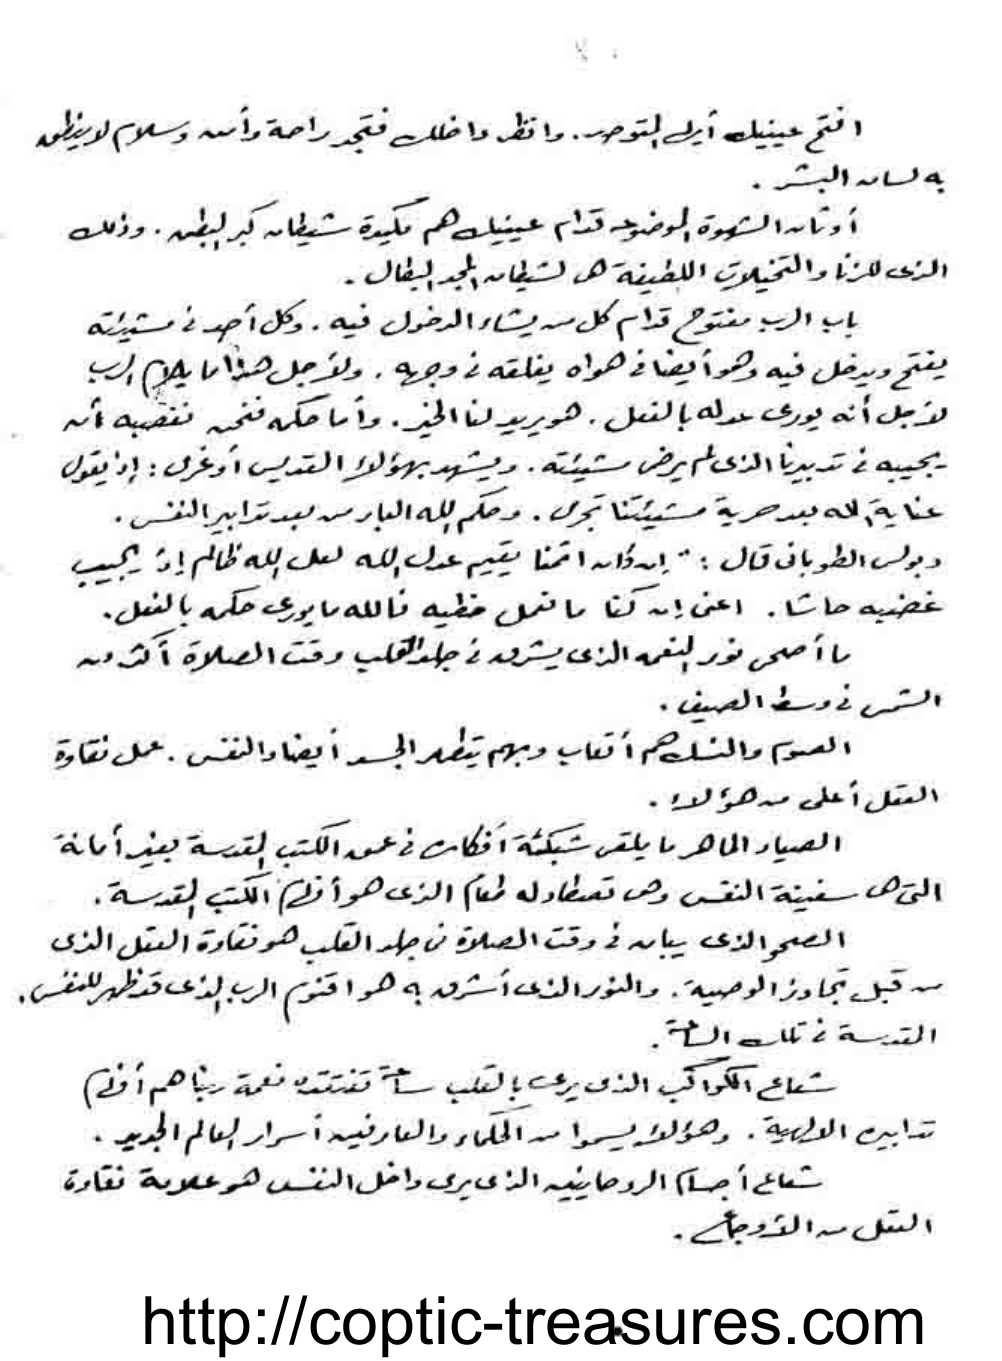 افتح عينيك أيها المتوحد. وانظر داخلك فتجد راحة وأمن وسلام لا ينطق
به لسان البشر.
أوثان الشهوة الموضوعه قدام عينيك هم مكيدة شيطان كبر البطن. وذلك
الذى للزنا والتخيلات اللطيفة هى لشيطان المجد البطال.
باب الرب مفتوح قدام كل من يشاء الدخول فيه. وكل أحد فى مشيئته
يفتح ويدخل فيه وهو أيضا فى هواه يغلقه فى وجهه. ولأجل هذا ما يلام الرب
لأجل أنه يورى عدله بالفعل. هو يريد لنا الخير. وأما حكمه فنحن نغصبه أن
يجيبه فى تدبيرنا الذى لم يرض مشيئته. ويشهد بهؤلاء القديس أوغرى: إذ يقول
عناية الله بعد حرية مشيئتنا تجرى. وحكم الله البار من بعد تدابير النفس.
وبولس الطوبانى قال: " إن كان اثمنا يقيم عدل الله لعل الله ظالم إذ يجيب
غضبه حاشا. اعنى إن كنا ما نعمل خطيه فالله ما يورى حكمه بالفعل.
ما أصحى نور النعمه الذى يشرق فى جلد القلب وقت الصلاة أكثر من
الشمس فى وسط الصيف.
الصوم والنسك هم أتعاب وبهم يتطهر الجسد أيضا والنفس. عمل نقاوة
العقل أعلى من هؤلاء.
الصياد الماهر ما يلقى شبكة أفكاره فى عمق الكتب المقدسة بغير أمانة
التى هى سفينة النفس وهى تصطاد له طعام الذى هو أفهام الكتب المقدسة.
الصحو الذى يبان فى وقت الصلاة فى جلد القلب هو نقاوة العقل الذى
من قبل تجاوز الوصية. والنور الذى أشرق به هو اقنوم الرب الذى قد ظهر للنفس
المقدسة فى تلك الساعة.
شعاع الكواكب الذى يرى بالقلب ساعة تفتقده نعمة ربنا هم أفهام
تدابيره الالهية. وهؤلاء يسموا من الحكماء والعارفين أسرار العالم الجديد.
شعاع أجسام الروحانيين الذى يرى داخل النفس هو علامة نقاوة
العقل من الأوجاع.
http://coptic-treasures.com